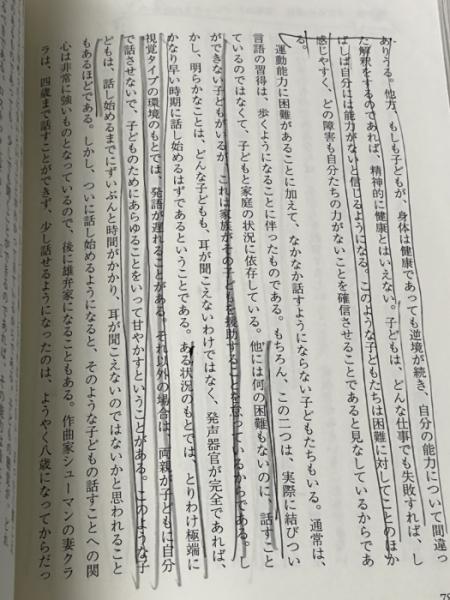 ありうる。他方、もしも子どもが、身体は健康であっても逆境が続き、自分の能力について間違っ
た解釈をするのであれば、精神的に健康とはいえない。子どもは、どんな仕事でも失敗すれば、し
ばしば自分には能力がないと信じるようになる。このような子どもたちは困難に対してことのほか
感じやすく、どの障害も自分たちの力がないことを確信させることであると見なしているからであ
る。
運動能力に困難があることに加えて、なかなか話すようにならない子どもたちもいる。通常は、
言語の習得は、歩くようになることに伴ったものである。もちろん、この二つは、実際に結びつい
ているのではなくて、子どもと家庭の状況に依存している。他には何の困難もないのに、話すこと
ができない子どもがいるが、これは家族がその子どもを援助することを怠っているからである。し
かし、明らかなことは、どんな子どもも、耳が聞こえないわけではなく、発声器官が完全であれば、
かなり早い時期に話し始めるはずであるということである。ある状況のもとでは、とりわけ極端に
視覚タイプの環境のもとでは、発語が遅れることがある。それ以外の場合は、両親が子どもに自分
で話させないで、子どものためにあらゆることをいって甘やかすということがある。このような子
どもは、話し始めるまでにずいぶんと時間がかかり、耳が聞こえないのではないかと思われること
もあるほどである。しかし、ついに話し始めるようになると、そのような子どもの話すことへの関
心は非常に強いものとなっているので、後に雄弁家になることもある。作曲家シューマンの妻クラ
ラは、四歳まで話すことができず、少し話せるようになったのは、ようやく八歳になってからだっ